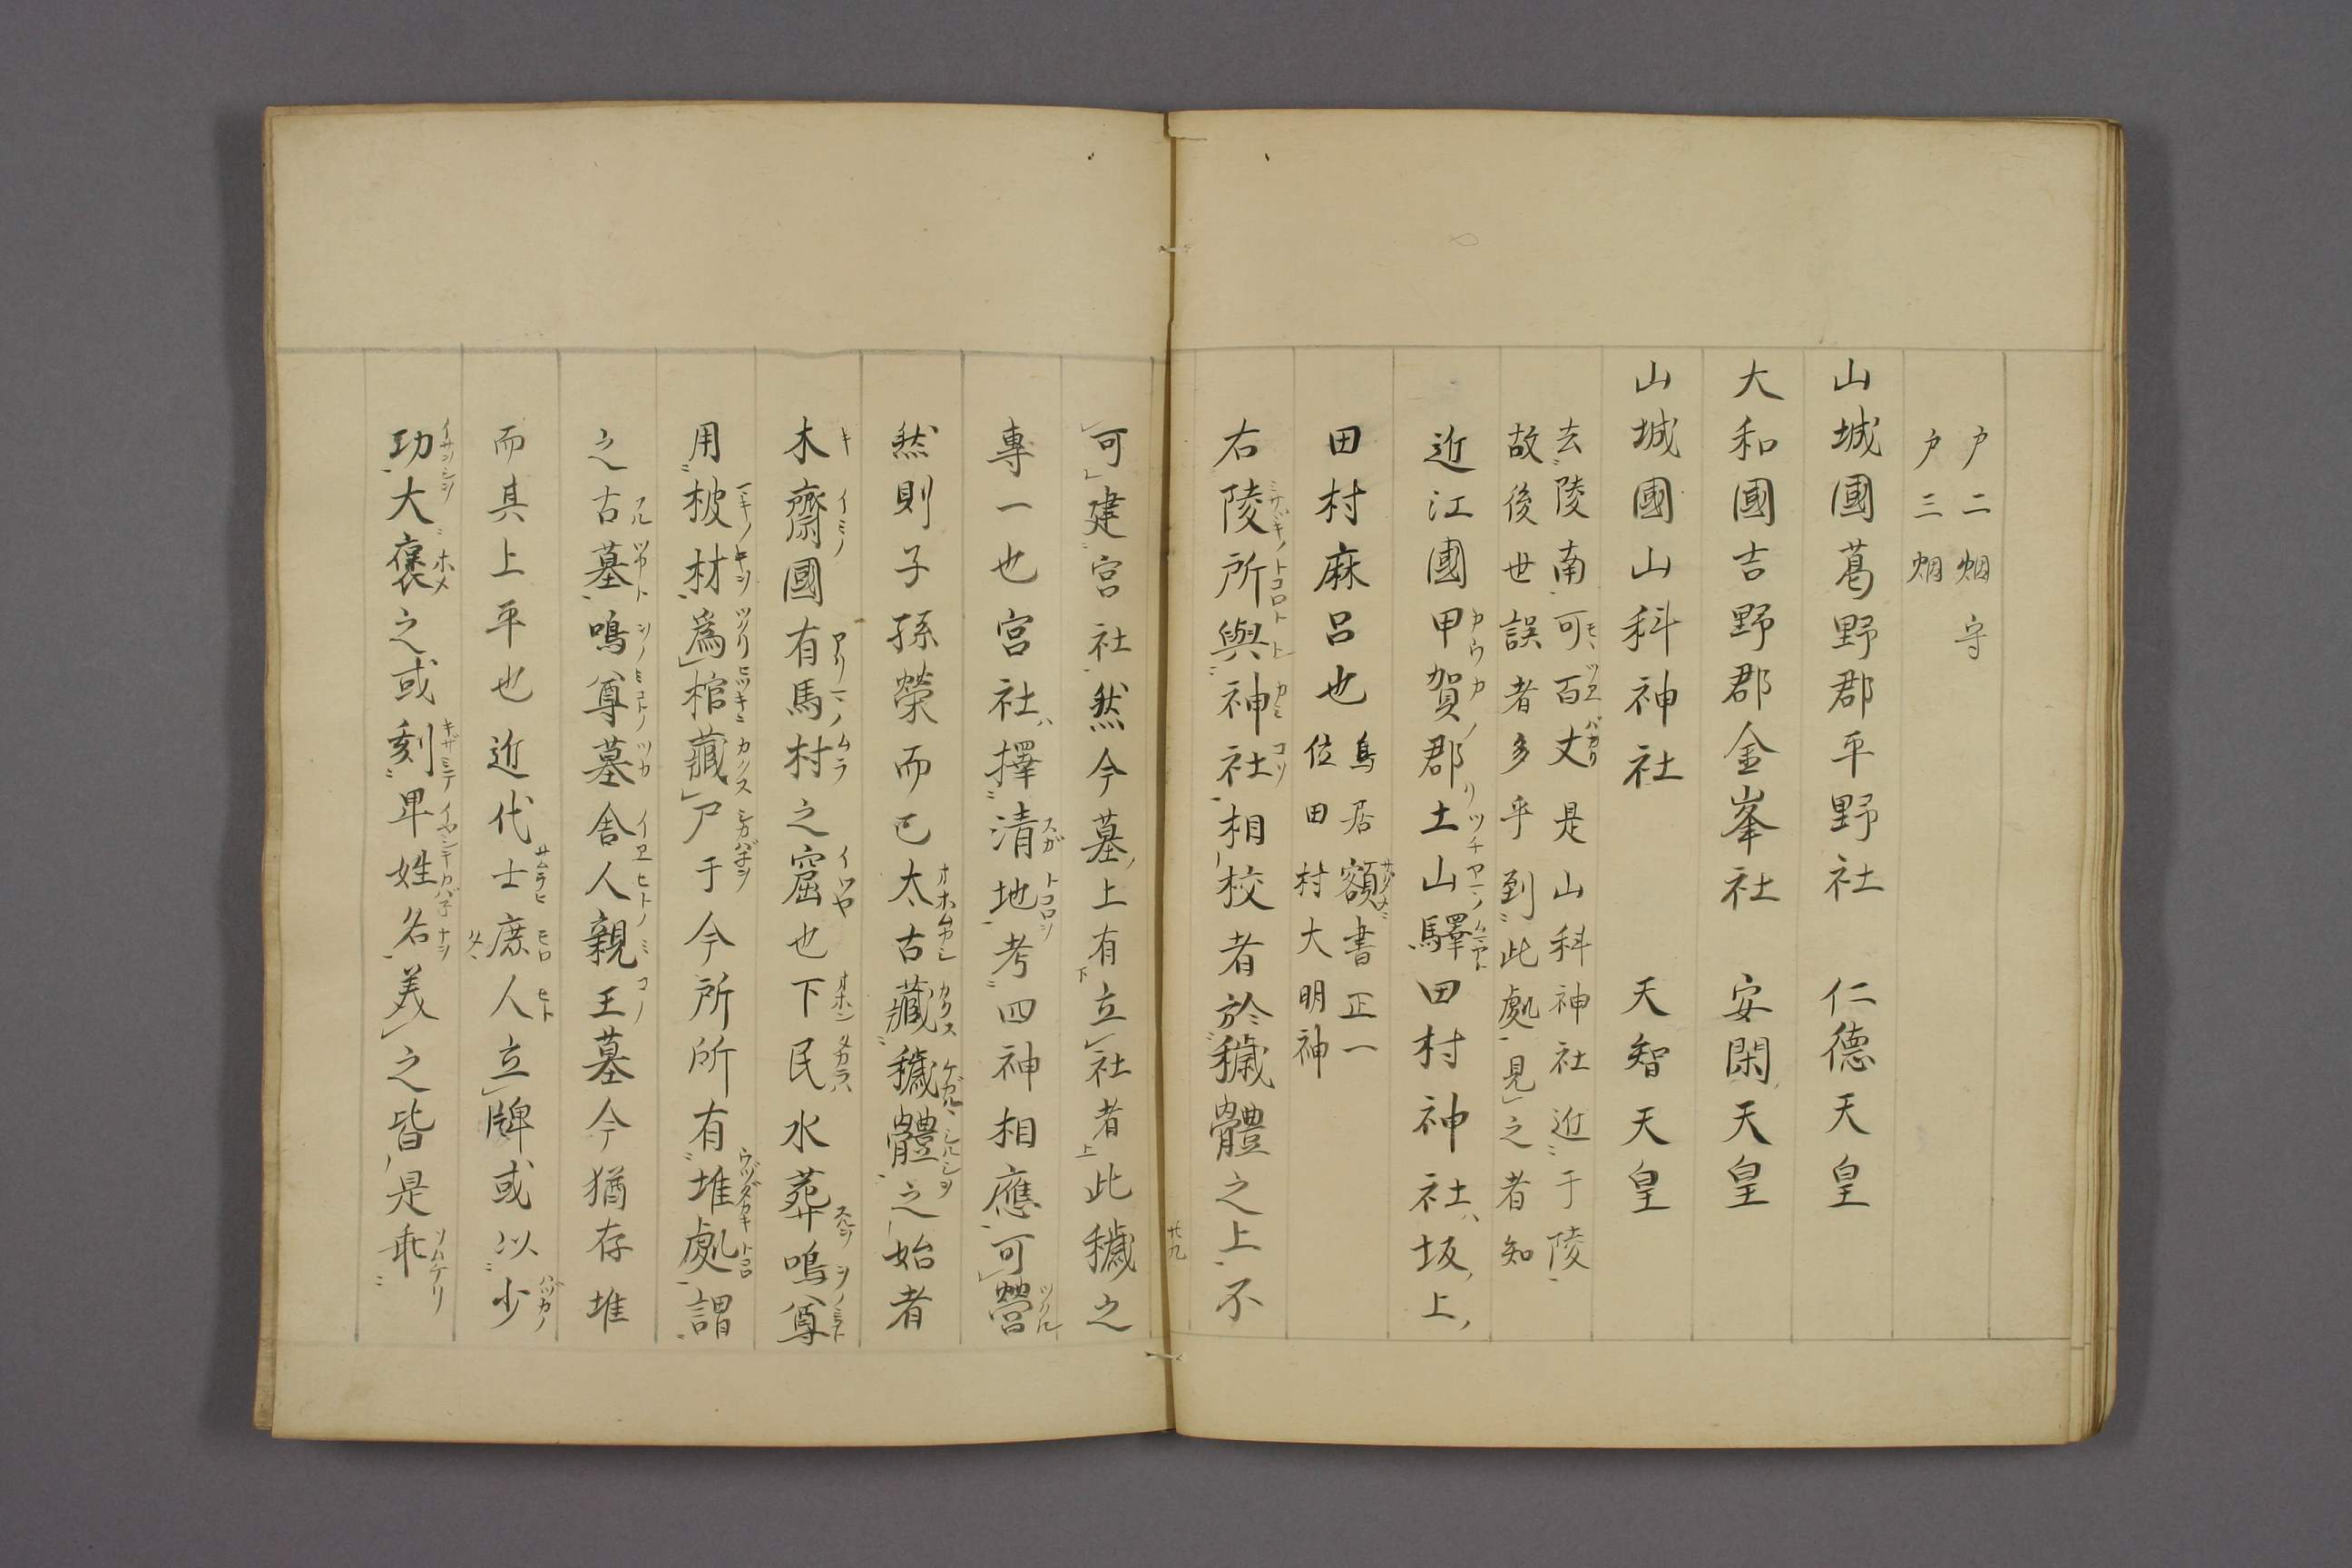 戸二烟守
戸三烟
山城國葛野郡平野社　仁德天皇
大和國吉野郡金峯社　安閑天皇
山城國山科神社　天智天皇
去陵南可百丈是山科神社近于陵
故後世誤者多乎到此處見之者知
近江國甲賀郡土山驛田村神社坂上
田村麻呂也
鳥居額書正一
位田村大明神
右陵所與神社相校者於穢體之上不
廿九
可建宮社然今墓上有立社者此穢之
專一也宮社擇清地考四神相應可營
然則子孫榮而已太古藏穢體之始者
木齋國有馬村之窟也下民水葬鳴尊
用柀材爲棺藏尸于今所所有堆處謂
之古墓鳴尊墓舍人親王墓今猶存堆
而其上平也近代士庶人立牌或以少
功大褒之或刻卑姓名美之皆是乖